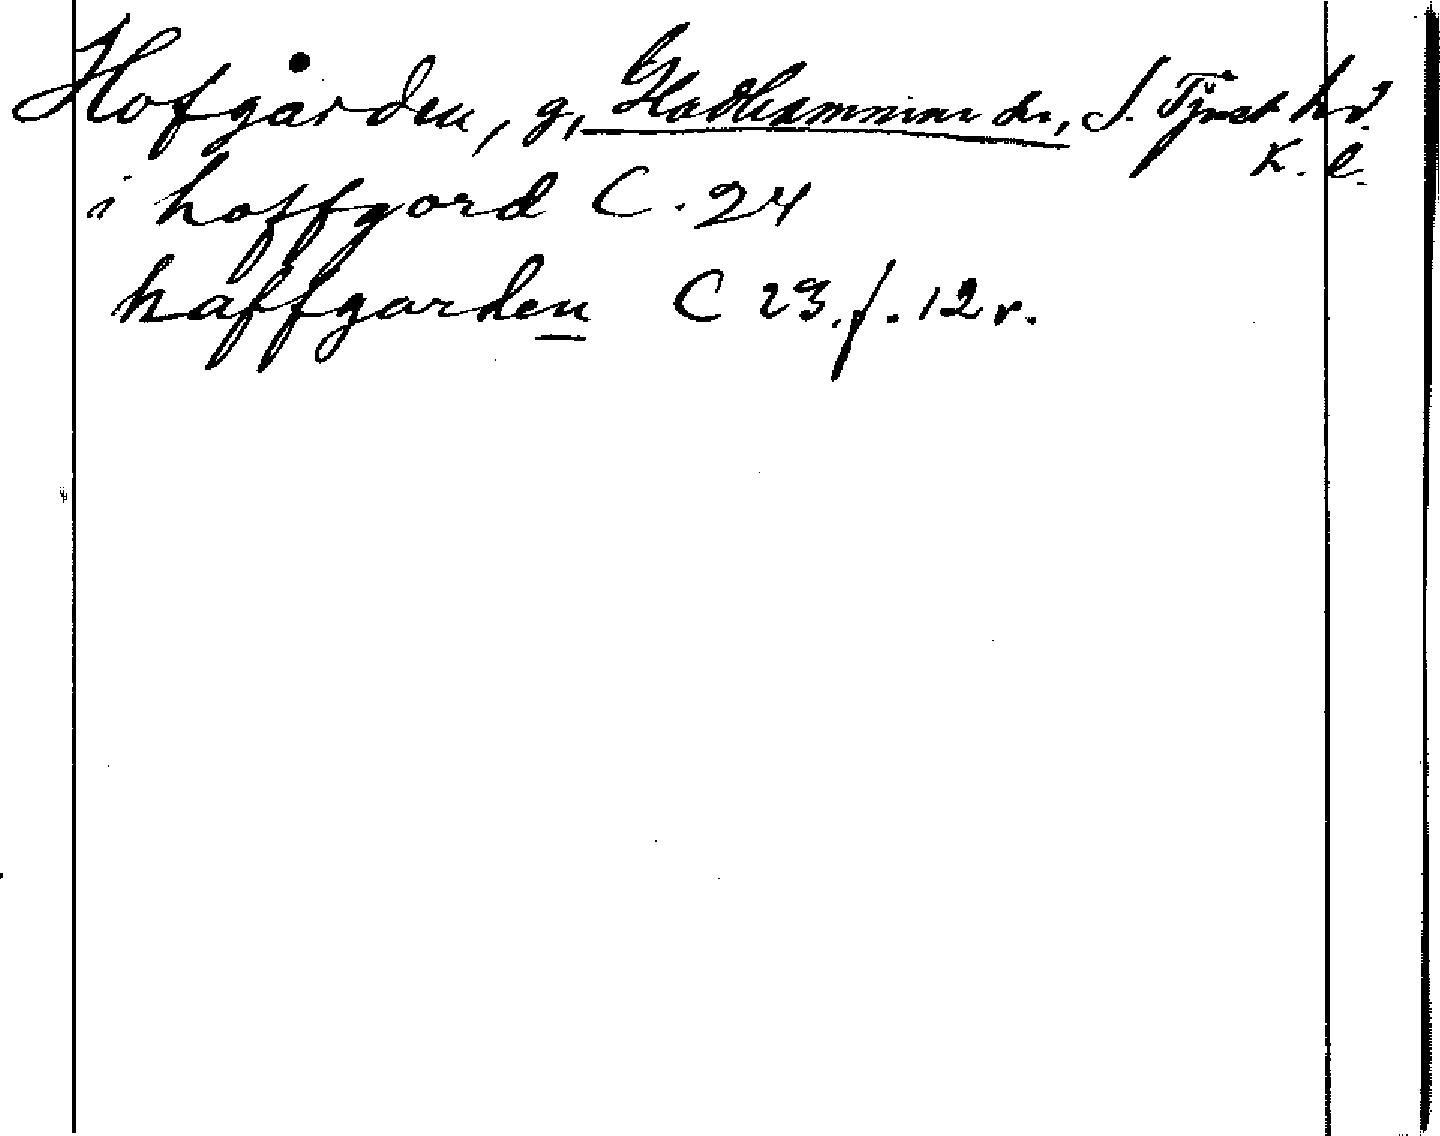 Hofgården, g, Gladhammar sn, S. Tjust hd.
K. l.
i hoffgord C. 24
haffgarden C 23. f. 12 r.